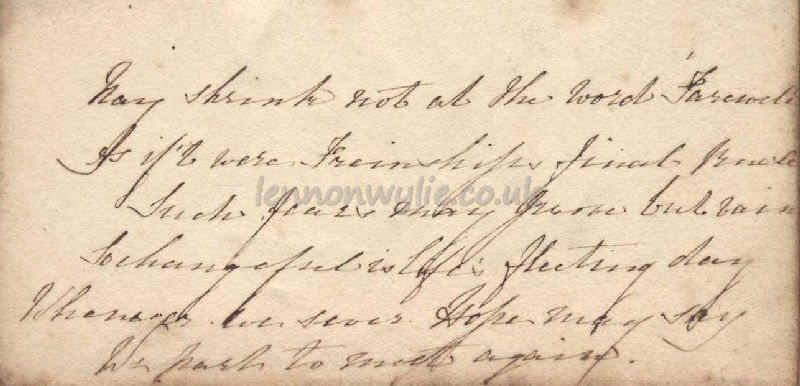 Nay shrink not at the word 'Farewell
As if't were Freinships final knell
lennonwylie.co.uk
Such fears may prove but vain
So changeful is life's fleeting day
Whene'er we sever Hope may say
We part to meet again.